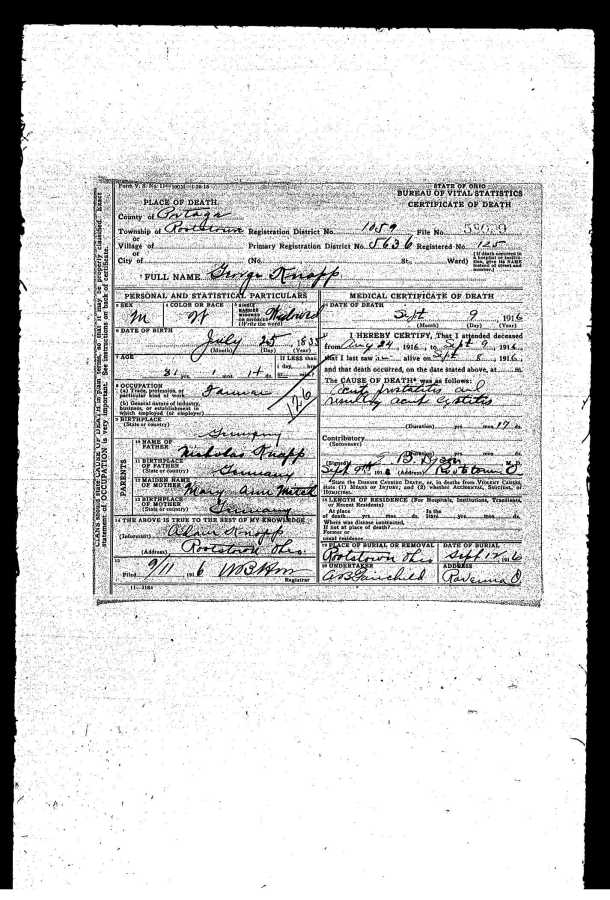 Form V. S. No. 11
STATE OF OHIO
BUREAU OF VITAL STATISTICS
CERTIFICATE OF DEATH
PLACE OF DEATH
County of Portage
Township of Rootstown Registration District No. 1059 File No.
or
Village of Primary Registration District No. 5636 Registered No. 125
or
City of (No. St. Ward) (If death occurred in a hospital or institution, give its NAME instead of street and number.)
FULL NAME George Knapp
PERSONAL AND STATISTICAL PARTICULARS
SEX M
COLOR OR RACE W
SINGLE MARRIED WIDOWED OR DIVORCED (Write the word) Widowed
DATE OF BIRTH July 25 1835
(Month) (Day) (Year)
AGE
81 yrs. 1 mos. 14 ds.
If LESS than
1 day, hrs.
or min.?
126
OCCUPATION
(a) Trade, profession, or
particular kind of work Farmer
(b) General nature of industry,
business, or establishment in
which employed (or employer)
BIRTHPLACE
(State or country) Germany
PARENTS
NAME OF
FATHER Nicholas Knapp
BIRTHPLACE
OF FATHER
(State or country) Germany
MAIDEN NAME
OF MOTHER Mary Ann
BIRTHPLACE
OF MOTHER
(State or country) Germany
THE ABOVE IS TRUE TO THE BEST OF MY KNOWLEDGE
(Informant) Adam Knapp
(Address) Rootstown Ohio
Filed 9/11 1916
Registrar
11-3184
MEDICAL CERTIFICATE OF DEATH
DATE OF DEATH
Sept 9 1916
(Month) (Day) (Year)
I HEREBY CERTIFY, That I attended deceased
from Aug 24, 1916, to Sept 9, 1916
that I last saw alive on Sept 8, 1916,
and that death occurred, on the date stated above, at m.
The CAUSE OF DEATH* was as follows:
Acute prostatitis and
resulting acute cystitis
(Duration) yrs. mos. 17 ds.
Contributory
(Secondary)
(Duration) yrs. mos. ds.
(Signed) B. Dyson
Sept 9th 1916 (Address) Rootstown O
*State the DISEASE CAUSING DEATH, or, in deaths from VIOLENT CAUSES,
state (1) MEANS OF INJURY; and (2) whether ACCIDENTAL, SUICIDAL, or
HOMICIDAL.
LENGTH OF RESIDENCE (For Hospitals, Institutions, Transients,
or Recent Residents)
At place In the
of death yrs. mos. ds. State yrs. mos. ds.
Where was disease contracted,
if not at place of death?
Former or
usual residence
PLACE OF BURIAL OR REMOVAL
Rootstown Ohio
DATE OF BURIAL
Sept 12, 1916
UNDERTAKER
A B Fairchild
ADDRESS
Ravenna O